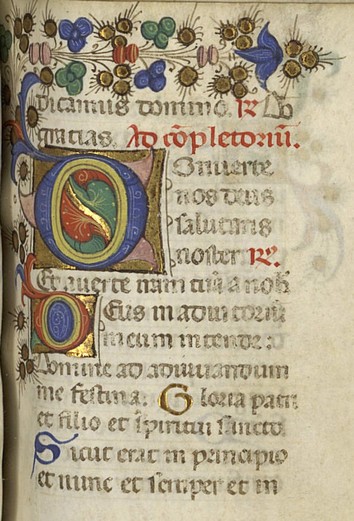 dicamus domino. R Do
gratias. Ad cõpletoriũ.
Onverte
nos deus
salutaris
noster R.
Et averte iram tuã a nob
Deus in adiutoriũ
meum intende :
Domine ad adiuvandum
me festina. Gloria patri
et filio et spiritui sancto
Sicut erat in principio
et nunc et semper et in